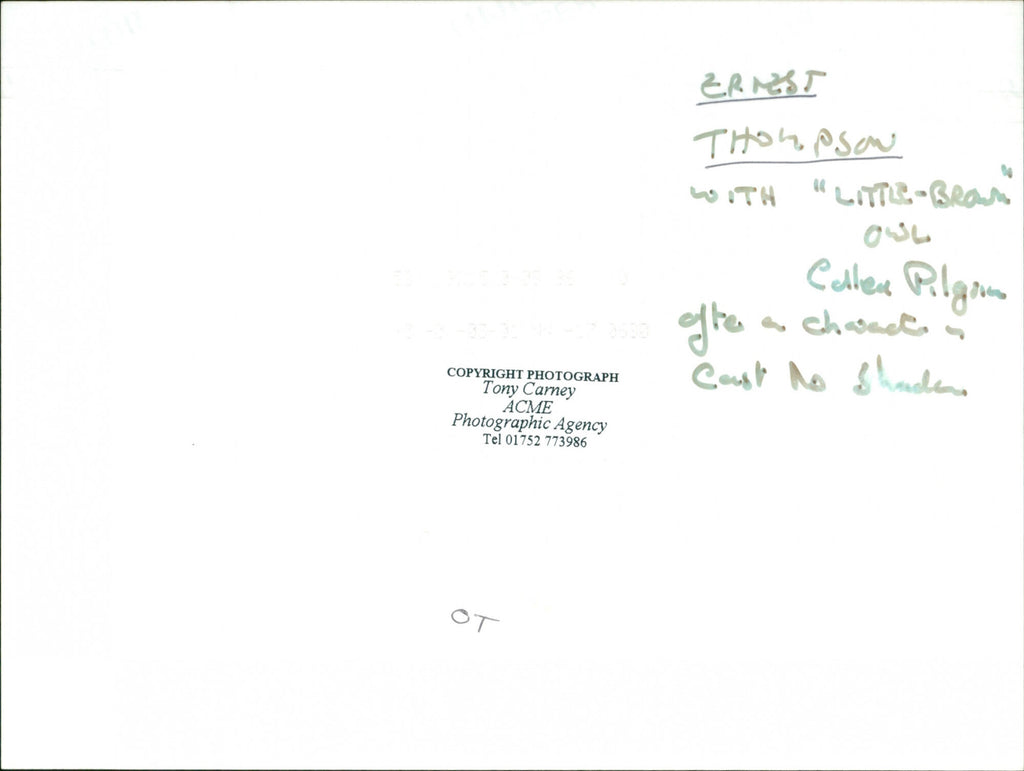 ERNEST
THOMPSON
WITH "LITTLE-BROWN"
OWL
Called Pilgrim
after a character in
Cast No Shadow
COPYRIGHT PHOTOGRAPH
Tony Carney
ACME
Photographic Agency
Tel 01752 773986
OT